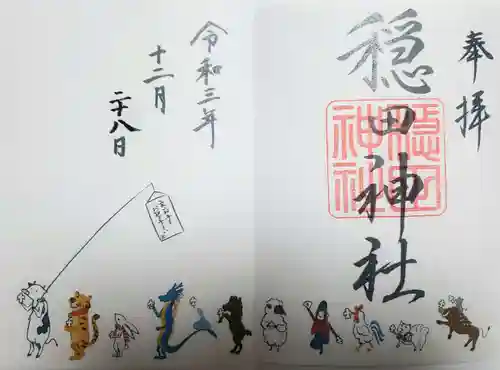 奉拝
穏田神社
穏田
神社
令和三年
十二月
二十八日